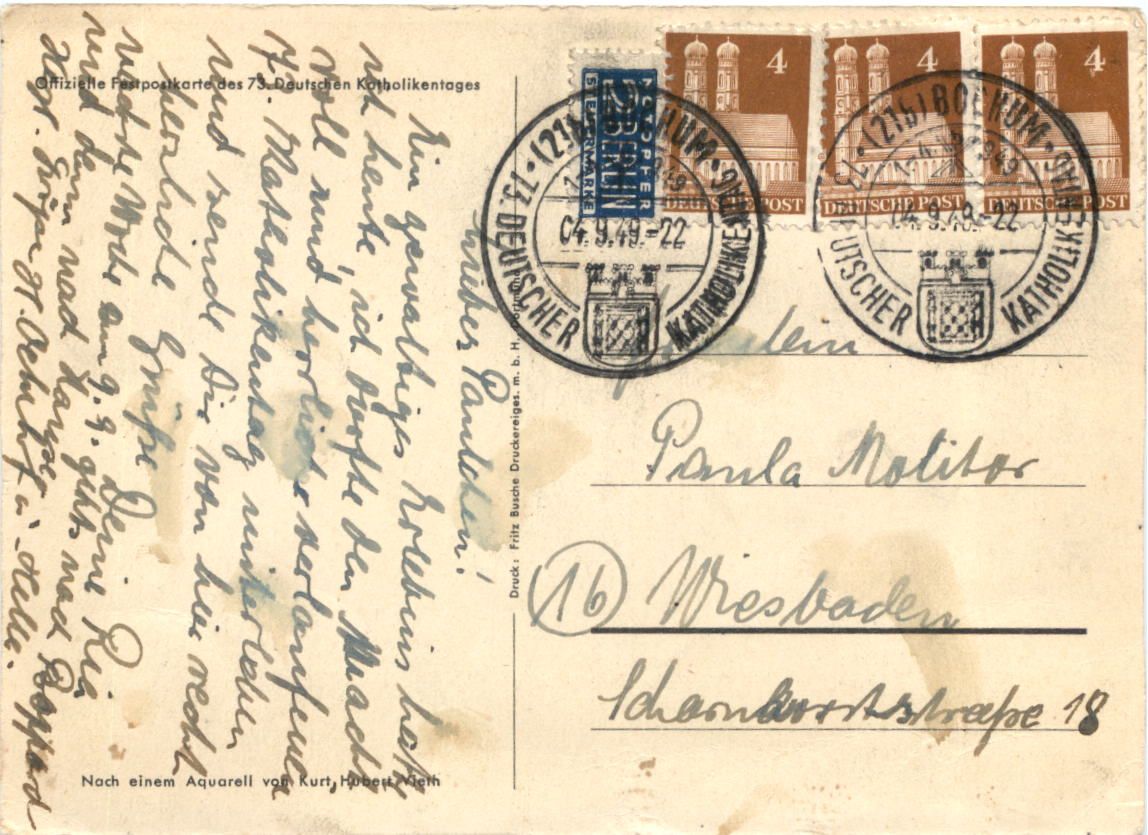 Offizielle Festpostkarte des 73. Deutschen Katholikentages
Lieber Paulchen!
Ein gewaltiges Erlebnis hatte
ich heute, ich durfte den Macht-
voll und herrlich verlaufenen
73. Katholikentag miterleben
und sende Dir von hier recht
herzliche Grüße Deine Ria
nächste Woche am 9.9. gehts nach Boppard
und dann nach Hause
Nach einem Aquarell von Kurt Hubert Vieth
Druck: Fritz Busche Druckereiges. m. b. H.
NOTOPFER
2 BERLIN
STEUERMARKE
4
DEUTSCHE POST
4
DEUTSCHE POST
4
DEUTSCHE POST
(21b) BOCHUM
1.-4. 1949
04.9.49.-22
73. DEUTSCHER KATHOLIKENTAG
(21b) BOCHUM
1.-4. 1949
04.9.49.-22
73. DEUTSCHER KATHOLIKENTAG
Fräulein
Paula Molitor
(16) Wiesbaden
Scharnhorststraße 18